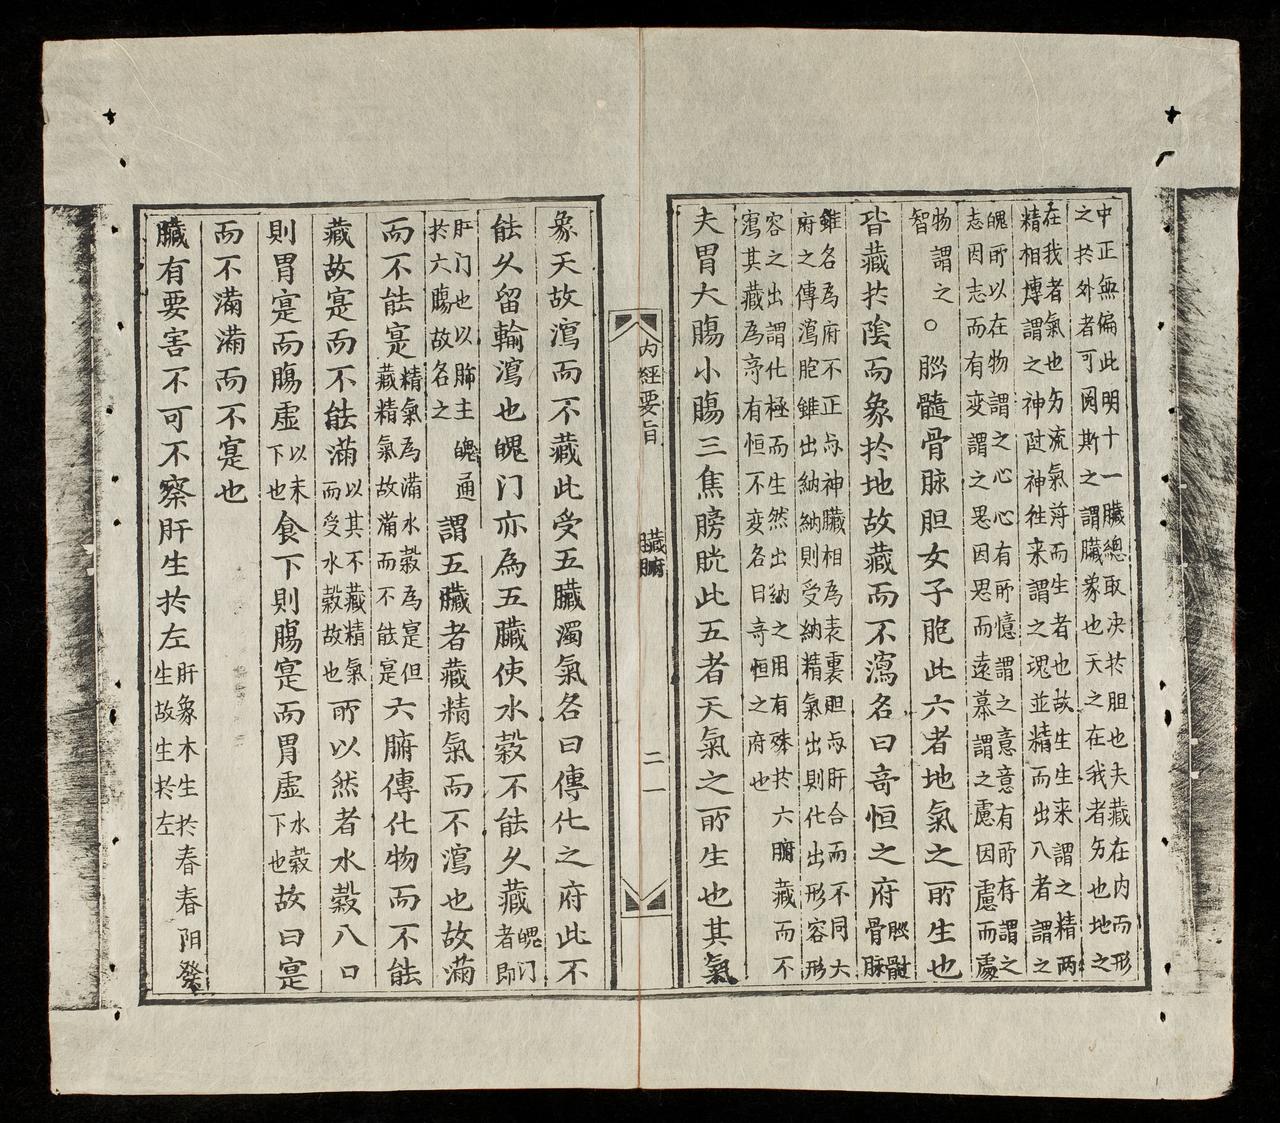 中正無偏此明十一臟總取决於胆也夫藏在内而形
之於外者可閱斯之謂臟象也天之在我者也地之
在我者氣也流氣薄而生者也故生生来謂之精兩
精相搏謂之神神徃来謂之䰟並精而出入者謂之
魄所以在物謂之心心有所憶謂之意意有所存謂之
志因志而有变謂之思因思而遠慕謂之慮因慮而處
物謂之
智
○腦髓骨脉胆女子胞此六者地氣之所生也
皆藏於陰而象於地故藏而不瀉名曰竒恒之府
腦髓
骨脉
雖名為府不正与神臟相為表裏胆与肝合而不同大
府之傳瀉胞雖出納納則受納精氣出則化出形容形
容之出謂化極而生然出納之用有殊於六腑藏而不
瀉其藏為竒有恒不变名曰竒恒之府也
夫胃大膓小膓三焦膀胱此五者天氣之所生也其氣
内經要旨
臟腑
二一
象天故瀉而不藏此受五臟濁氣名曰傳化之府此不
能久留輸瀉也魄门亦為五臟使水糓不能久藏
魄门
者即
肛门也以肺主魄通
於六膓故名之
謂五臟者藏精氣而不瀉也故滿
而不能寔
精氣為滿水糓為寔但
藏精氣故滿而不能寔
六腑傳化物而不能
藏故寔而不能滿
以其不藏精氣
而受水糓故也
所以然者水糓入口
則胃寔而膓虚
以未
下也
食下則膓寔而胃虚
水糓
下也
故曰寔
而不滿滿而不寔也
臟有要害不可不察肝生於左
肝象木生於春春阳發
生故生於左